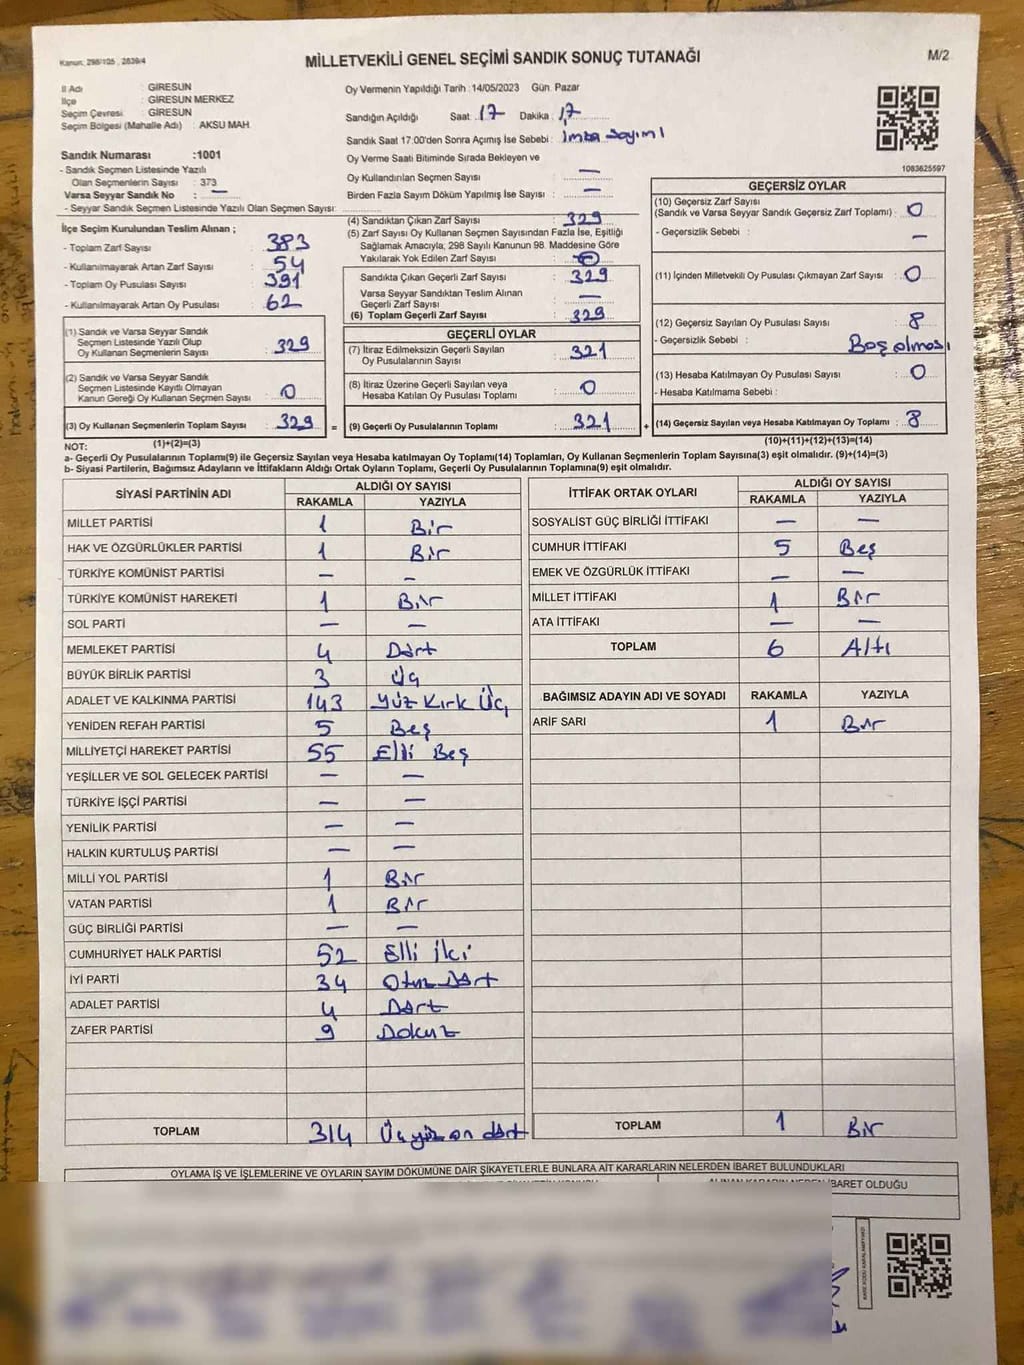 Kanun: 298/105 , 2839/4
MİLLETVEKİLİ GENEL SEÇİMİ SANDIK SONUÇ TUTANAĞI
M/2
İl Adı : GİRESUN
İlçe : GİRESUN MERKEZ
Seçim Çevresi : GİRESUN
Seçim Bölgesi (Mahalle Adı) : AKSU MAH.
Sandık Numarası :1001
- Sandık Seçmen Listesinde Yazılı
Olan Seçmenlerin Sayısı : 373
Varsa Seyyar Sandık No : —
- Seyyar Sandık Seçmen Listesinde Yazılı Olan Seçmen Sayısı:
İlçe Seçim Kurulundan Teslim Alınan ;
- Toplam Zarf Sayısı : 383
- Kullanılmayarak Artan Zarf Sayısı : 54
- Toplam Oy Pusulası Sayısı : 391
- Kullanılmayarak Artan Oy Pusulası : 62
(1) Sandık ve Varsa Seyyar Sandık
Seçmen Listesinde Yazılı Olup
Oy Kullanan Seçmenlerin Sayısı : 329
(2) Sandık ve Varsa Seyyar Sandık
Seçmen Listesinde Kayıtlı Olmayan
Kanun Gereği Oy Kullanan Seçmen Sayısı : 0
(3) Oy Kullanan Seçmenlerin Toplam Sayısı : 329 =
(1)+(2)=(3)
Oy Vermenin Yapıldığı Tarih :14/05/2023 Gün: Pazar
Sandığın Açıldığı Saat : 17 Dakika : 17
Sandık Saat 17.00'den Sonra Açımış İse Sebebi : İmza Sayımı
Oy Verme Saati Bitiminde Sırada Bekleyen ve
Oy Kullandırılan Seçmen Sayısı : —
Birden Fazla Sayım Döküm Yapılmış İse Sayısı : —
(4) Sandıktan Çıkan Zarf Sayısı : 329
(5) Zarf Sayısı Oy Kullanan Seçmen Sayısından Fazla İse, Eşitliği
Sağlamak Amacıyla; 298 Sayılı Kanunun 98. Maddesine Göre
Yakılarak Yok Edilen Zarf Sayısı :
Sandıkta Çıkan Geçerli Zarf Sayısı : 329
Varsa Seyyar Sandıktan Teslim Alınan
Geçerli Zarf Sayısı : —
(6) Toplam Geçerli Zarf Sayısı : 329
GEÇERLİ OYLAR
(7) İtiraz Edilmeksizin Geçerli Sayılan
Oy Pusulalarının Sayısı : 321
(8) İtiraz Üzerine Geçerli Sayılan veya
Hesaba Katılan Oy Pusulası Toplamı : 0
(9) Geçerli Oy Pusulalarının Toplamı : 321 +
1083625597
GEÇERSİZ OYLAR
(10) Geçersiz Zarf Sayısı
(Sandık ve Varsa Seyyar Sandık Geçersiz Zarf Toplamı) : 0
- Geçersizlik Sebebi : —
(11) İçinden Milletvekili Oy Pusulası Çıkmayan Zarf Sayısı : 0
(12) Geçersiz Sayılan Oy Pusulası Sayısı : 8
- Geçersizlik Sebebi : Boş olması
(13) Hesaba Katılmayan Oy Pusulası Sayısı : 0
- Hesaba Katılmama Sebebi :
(14) Geçersiz Sayılan veya Hesaba Katılmayan Oy Toplamı : 8
(10)+(11)+(12)+(13)=(14)
NOT:
a- Geçerli Oy Pusulalarının Toplamı(9) ile Geçersiz Sayılan veya Hesaba katılmayan Oy Toplamı(14) Toplamları, Oy Kullanan Seçmenlerin Toplam Sayısına(3) eşit olmalıdır. (9)+(14)=(3)
b- Siyasi Partilerin, Bağımsız Adayların ve İttifakların Aldığı Ortak Oyların Toplamı, Geçerli Oy Pusulalarının Toplamına(9) eşit olmalıdır.
SİYASİ PARTİNİN ADI ALDIĞI OY SAYISI
RAKAMLA YAZIYLA
MİLLET PARTİSİ 1 Bir
HAK VE ÖZGÜRLÜKLER PARTİSİ 1 Bir
TÜRKİYE KOMÜNİST PARTİSİ — —
TÜRKİYE KOMÜNİST HAREKETİ 1 Bir
SOL PARTİ — —
MEMLEKET PARTİSİ 4 Dört
BÜYÜK BİRLİK PARTİSİ 3 Üç
ADALET VE KALKINMA PARTİSİ 143 Yüz Kırk Üç
YENİDEN REFAH PARTİSİ 5 Beş
MİLLİYETÇİ HAREKET PARTİSİ 55 Elli Beş
YEŞİLLER VE SOL GELECEK PARTİSİ — —
TÜRKİYE İŞÇİ PARTİSİ — —
YENİLİK PARTİSİ — —
HALKIN KURTULUŞ PARTİSİ — —
MİLLİ YOL PARTİSİ 1 Bir
VATAN PARTİSİ 1 Bir
GÜÇ BİRLİĞİ PARTİSİ — —
CUMHURİYET HALK PARTİSİ 52 Elli İki
İYİ PARTİ 34 Otuz Dört
ADALET PARTİSİ 4 Dört
ZAFER PARTİSİ 9 Dokuz
TOPLAM 314 Üçyüz on dört
İTTİFAK ORTAK OYLARI ALDIĞI OY SAYISI
RAKAMLA YAZIYLA
SOSYALİST GÜÇ BİRLİĞİ İTTİFAKI — —
CUMHUR İTTİFAKI 5 Beş
EMEK VE ÖZGÜRLÜK İTTİFAKI — —
MİLLET İTTİFAKI 1 Bir
ATA İTTİFAKI — —
TOPLAM 6 Altı
BAĞIMSIZ ADAYIN ADI VE SOYADI RAKAMLA YAZIYLA
ARİF SARI 1 Bir
TOPLAM 1 Bir
OYLAMA İŞ VE İŞLEMLERİNE VE OYLARIN SAYIM DÖKÜMÜNE DAİR ŞİKAYETLERLE BUNLARA AİT KARARLARIN NELERDEN İBARET BULUNDUKLARI
ALINAN KARARIN NEDEN İBARET OLDUĞU